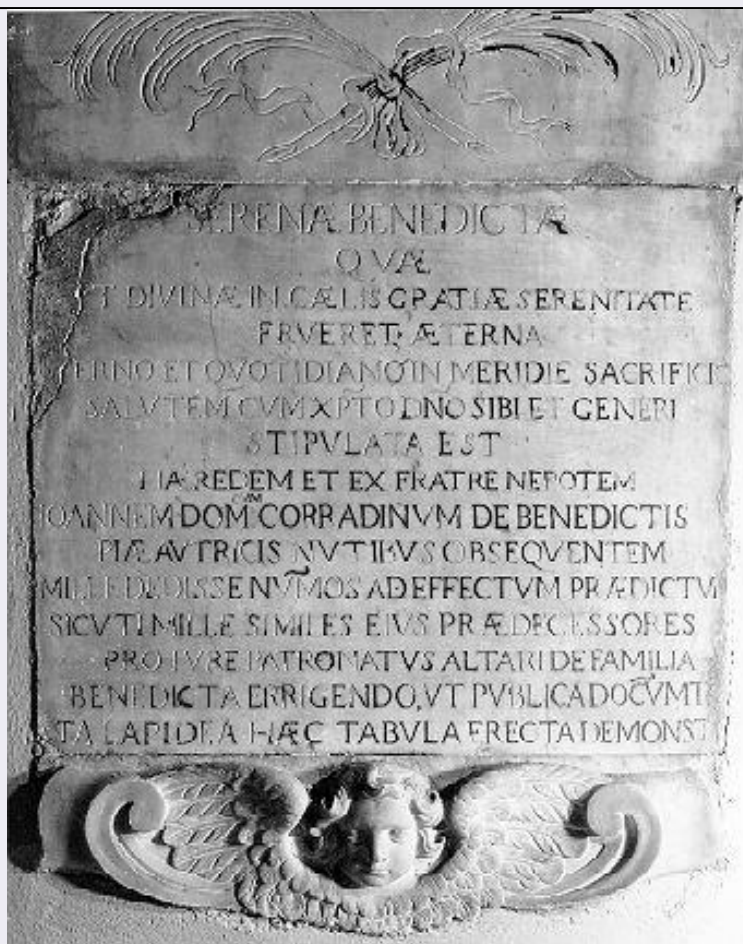 SERENÆ BENEDICTÆ
QVÆ
VT DIVINÆ IN CÆLIS GRATIÆ SERENITATE
FRVERET; ÆTERNA
ET QVOTIDIANO IN MERIDIE SACRIFICI
SALVTEM CVM XPTO DNO SIBI ET GENERI
STIPVLATA EST
HÆREDEM ET EX FRATRE NEPOTEM
IOANNEM DOM CAM CORRADINVM DE BENEDICTIS
PIÆ AVTRICIS NVTIBVS OBSEQVENTEM
MILLE DEDISSE NVMOS AD EFFECTVM PRÆDICTV
SICVTI MILLE SIMILES EIVS PRÆDECESSORES
PRO IVRE PATRONATVS ALTARI DE FAMILIA
BENEDICTA ERRIGENDO, VT PVBLICA DOCVMT
TA LAPIDEA HÆC TABVLA ERECTA DEMONST